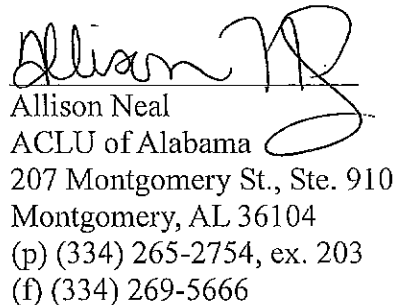 Allison N
Allison Neal
ACLU of Alabama
207 Montgomery St., Ste. 910
Montgomery, AL 36104
(p) (334) 265-2754, ex. 203
(f) (334) 269-5666